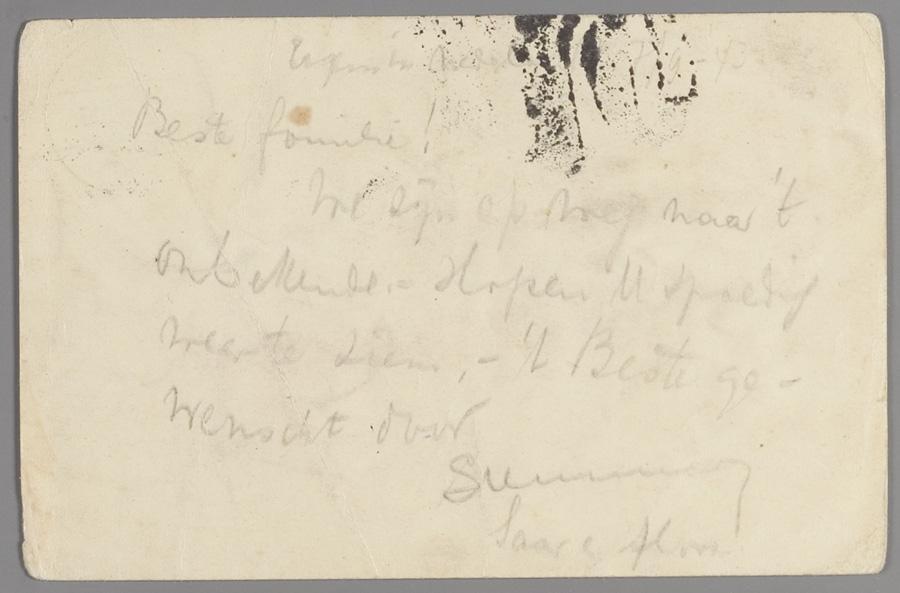 7/9-43
Beste familie!
We zijn op weg naar 't
onbekende.- Hopen U spoedig
weer te zien,- 't Beste ge-
wenscht door
Saar